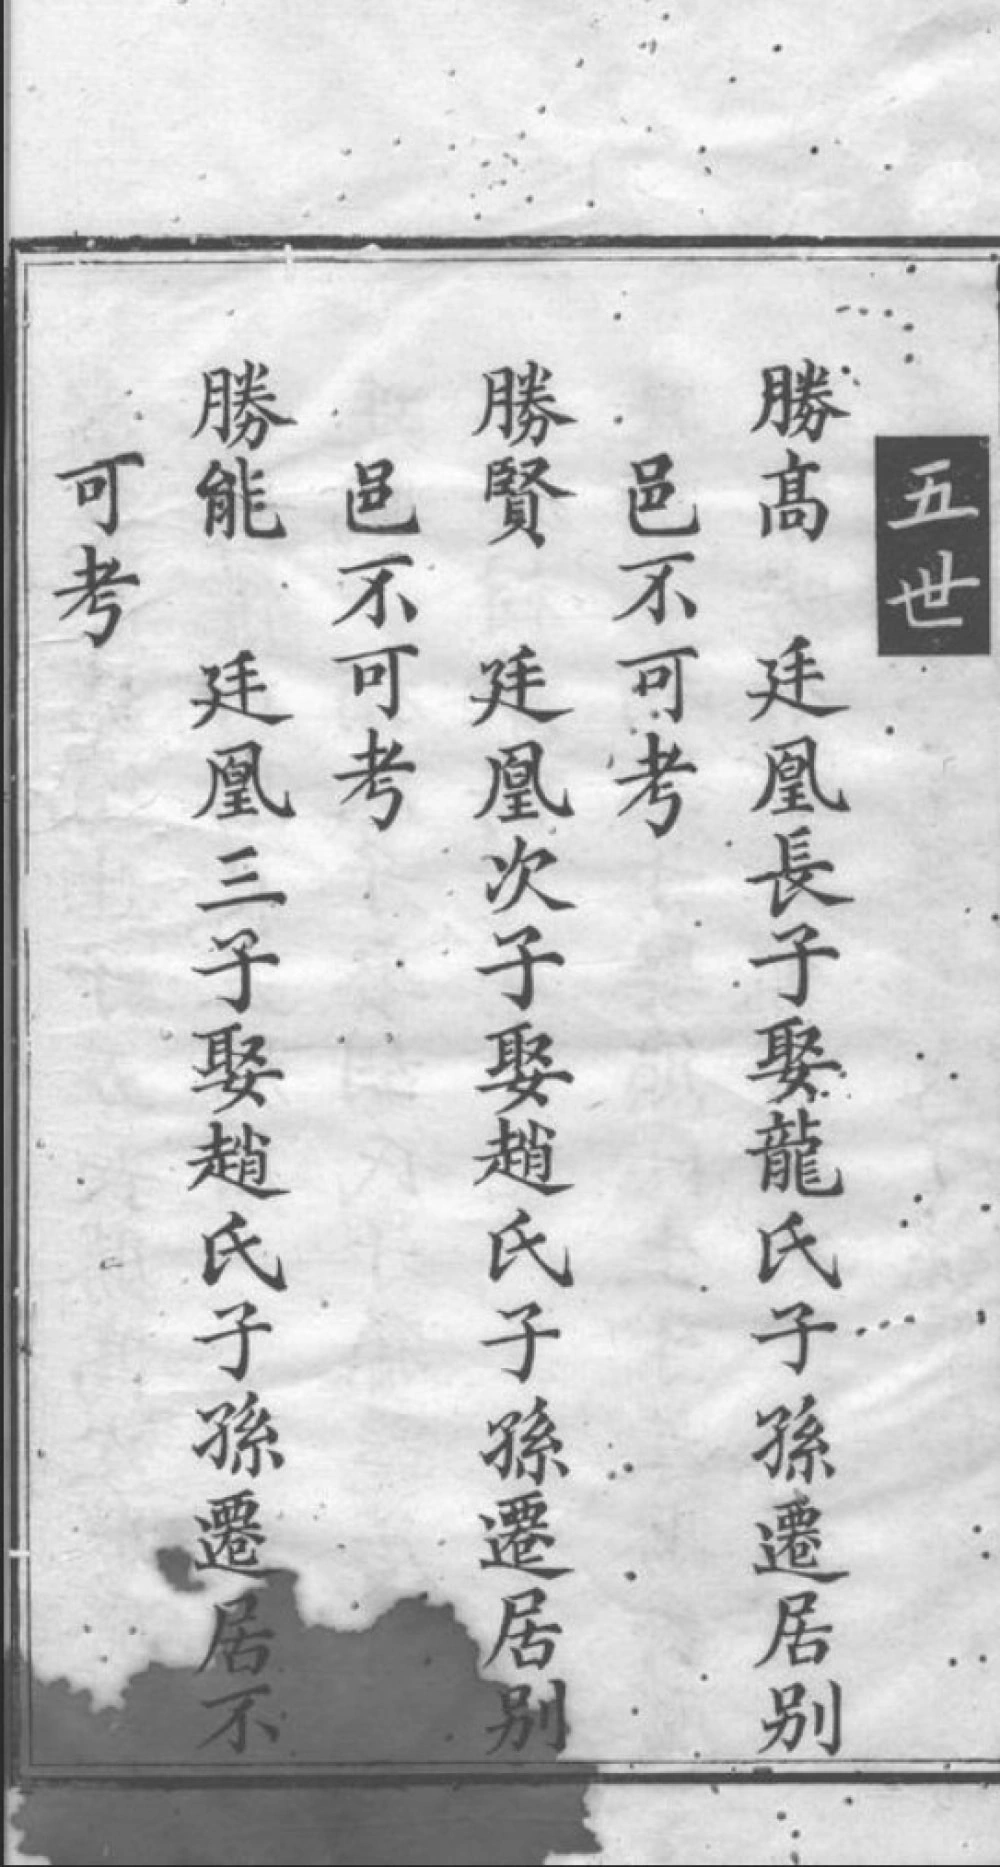 五世
勝髙　廷凰長子娶龍氏子孫遷居别
邑不可考
勝賢　廷凰次子娶趙氏子孫遷居别
邑不可考
勝能　廷凰三子娶趙氏子孫遷居不
可考